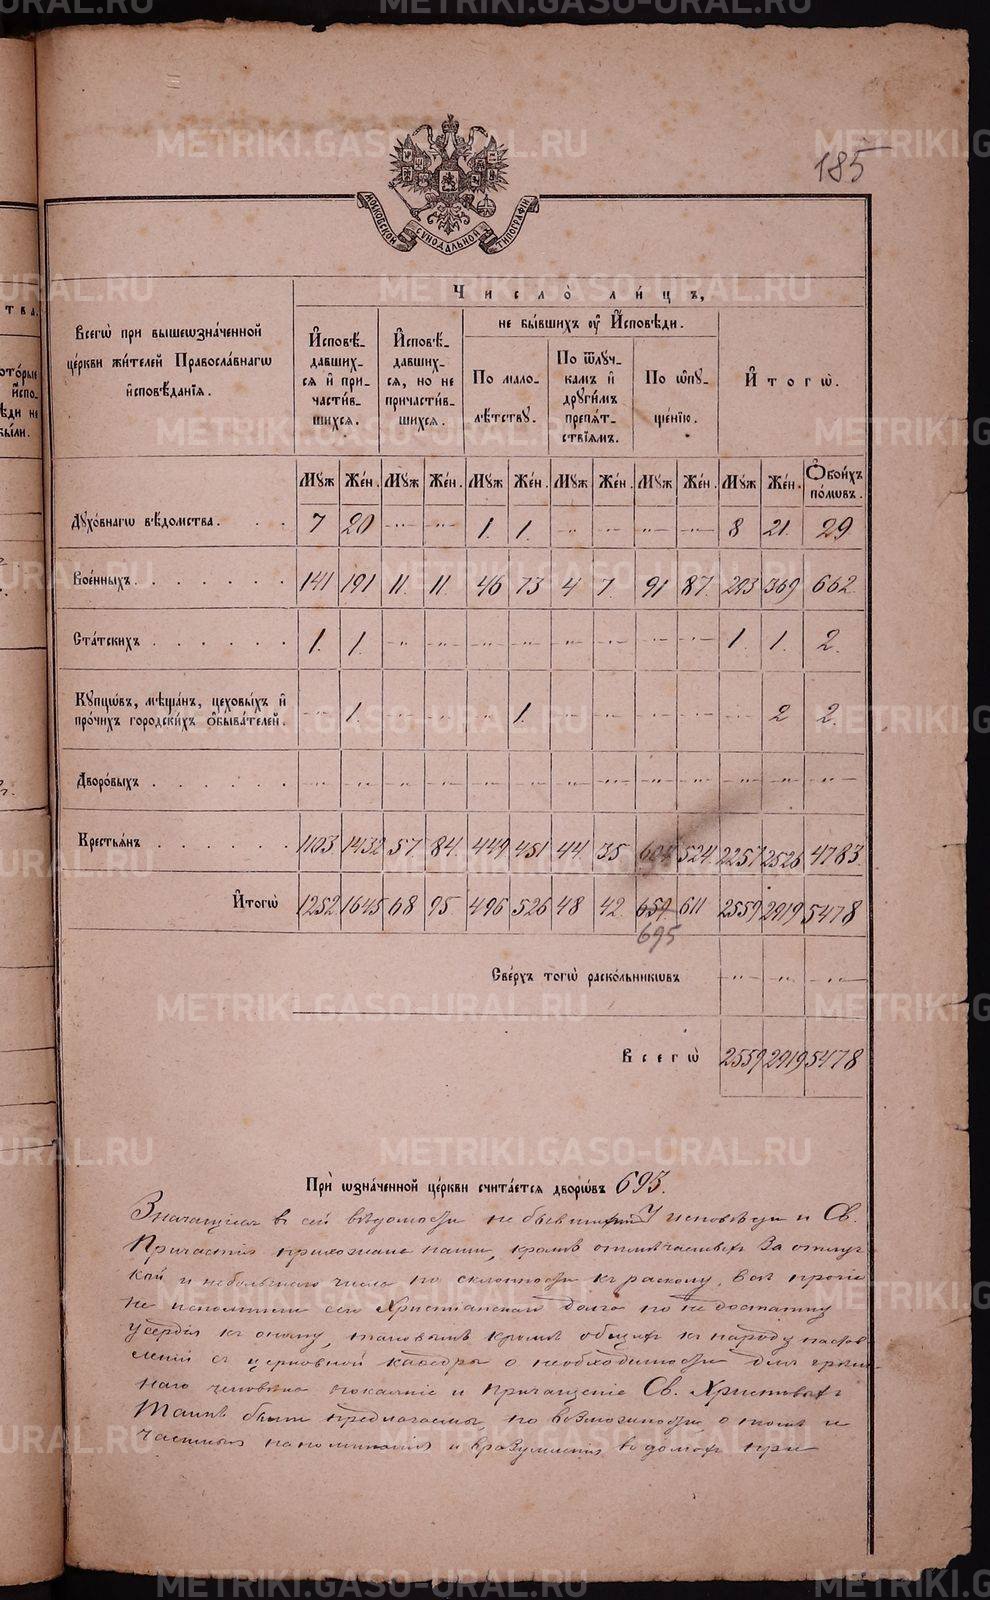 185
МОСКОВСКОЙ СѴНОДАЛЬНОЙ ТИПОГРАФІИ
Число̀ ли́цъ,
Всегѡ̀ при вышеѡзна́ченной
це́ркви жи́телей Правосла́внагѡ
и҆сповѣ́данїѧ.
И҆сповѣ́-
давших-
сѧ и҆ при-
части́в-
шихсѧ.
И҆сповѣ́-
давших-
сѧ, но не
причасти́в-
шихсѧ.
не бы́вшихъ ᲂу҆ И҆сповѣ́ди.
По мало-
лѣ́тствꙋ.
По ѿлꙋч-
камъ и҆
дрꙋги́мъ
препѧ́т-
ствїѧмъ.
По ѡ҆пꙋ-
ще́нїю.
И҆ т о́ г ѡ.
Мꙋж Же́н. Мꙋж Же́н. Мꙋж Же́н. Мꙋж Же́н. Мꙋж Же́н. Мꙋж Же́н. Ѻ҆бои́хъ по́лѡвъ.
Дꙋхо́внагѡ вѣ́домства. 7 20 -"- -"- 1. 1. -"- -"- -"- -"- 8 21. 29
Вое́нныхъ. 141 191 11. 11. 46 73 4 7. 91 87. 293 369 662
Ста́тскихъ 1. 1. -"- -"- -"- -"- -"- -"- -"- -"- 1. 1. 2.
Кꙋпцѡ́въ, мѣща́нъ, цеховы́хъ и҆
про́чихъ городски́хъ ѻ҆быва́телей. -"- 1. -"- -"- -"- 1. -"- -"- -"- -"- -"- 2 2.
Дворо́выхъ -"- -"- -"- -"- -"- -"- -"- -"- -"- -"- -"- -"- -"-
Крестьѧ́нъ 1103 1432 57. 84. 449 451 44. 35 604 524. 2257 2526 4783.
И҆тогѡ̀ 1252 1645 68 95. 496 526 48 42. 659 611 2559 2919 5478
695
Све́рхъ тогѡ̀ раско́льникѡвъ -"- -"- -"-
В с е г ѡ̀ 2559 2919 5478
При ѡзна́ченной це́ркви счита́етсѧ дворѡ́въ 693.
Значащіеся въ сей вѣдомости не бывшіе у исповѣди и Св.
Причастія прихожане наши, кромѣ отмѣчаемыхъ за отлуч-
кой и небольшаго числа по склонности къ расколу, всѣ прочіе
не исполнили сего Христіанскаго долга по недостатку
усердія къ оному, таковымъ кромѣ общихъ къ народу настав-
леній съ церковной кафедры о необходимости для грѣш-
наго человѣка покаянія и причащенія Св. Христовыхъ
Таинъ были предлагаемы, по возможности о томъ и
частныя напоминанія и вразумленія въ домахъ при